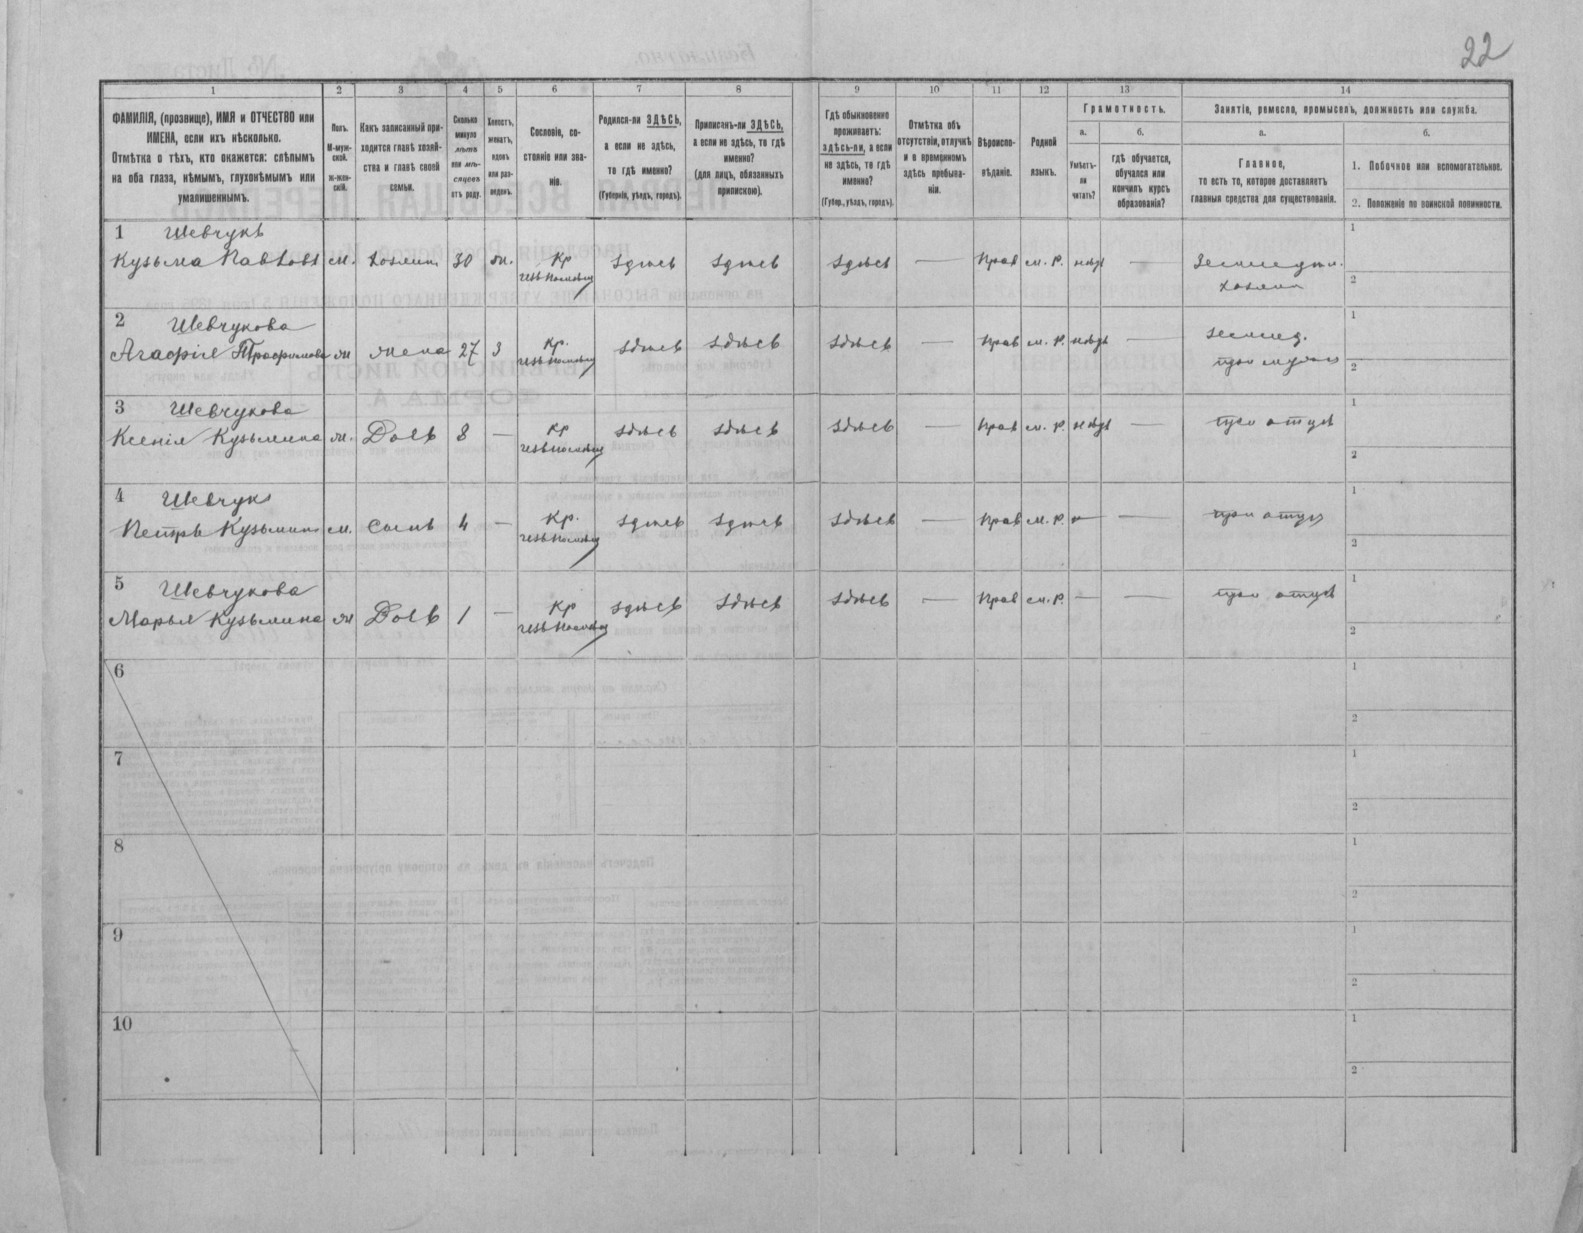 22
1 2 3 4 5 6 7 8 9 10 11 12 13 14
ФАМИЛІЯ, (прозвище), ИМЯ и ОТЧЕСТВО или
ИМЕНА, если ихъ нѣсколько.
Отмѣтка о тѣхъ, кто окажется: слѣпымъ
на оба глаза, нѣмымъ, глухонѣмымъ или
умалишеннымъ.
Полъ.
М-муж-
ской.
ж-жен-
скій.
Какъ записанный при-
ходится главѣ хозяй-
ства и главѣ своей
семьи.
Сколько
минуло
лѣтъ
или мѣ-
сяцевъ
отъ роду.
Холостъ,
женатъ,
вдовъ
или раз-
веденъ.
Сословіе, со-
стояніе или зва-
ніе.
Родился-ли ЗДѢСЬ,
а если не здѣсь,
то гдѣ именно?
(Губернія, уѣздъ, городъ).
Приписанъ-ли ЗДѢСЬ,
а если не здѣсь, то гдѣ
именно?
(для лицъ, обязанныхъ
припискою).
Гдѣ обыкновенно
проживаетъ:
здѣсь-ли, а если
не здѣсь, то гдѣ
именно?
(Губер., уѣздъ, городъ).
Отмѣтка объ
отсутствіи, отлучкѣ
и о временномъ
здѣсь пребыва-
ніи.
Вѣроиспо-
вѣданіе.
Родной
языкъ.
Грамотность.
а.
б.
Умѣетъ-
ли
читать?
гдѣ обучается,
обучался или
кончилъ курсъ
образованія?
Занятіе, ремесло, промыселъ, должность или служба.
а.
б.
Главное,
то есть то, которое доставляетъ
главныя средства для существованія.
1. Побочное или вспомогательное.
2. Положеніе по воинской повинности.
1 Шевчукъ
Кузьма Павловъ м. хозяин 30 ж. Кр. здѣсь здѣсь здѣсь — Прав м. Р. нѣтъ — Земледѣл.
хозяин
1
2
2 Шевчукова
Агафія Трофимова ж жена 27 з Кр. здѣсь здѣсь здѣсь — Прав м. Р. нѣтъ — землед.
при мужѣ
1
2
3 Шевчукова
Ксенія Кузьмина ж. Дочь 8 — Кр здѣсь здѣсь здѣсь — Прав м. Р. нѣтъ — при отцѣ
1
2
4 Шевчукъ
Петръ Кузьминъ м. Сынъ 4 — Кр. здѣсь здѣсь здѣсь — Прав м. Р. — — при отцѣ
1
2
5 Шевчукова
Марья Кузьмина ж Дочь 1 — Кр здѣсь здѣсь здѣсь — Прав м. Р. — — при отцѣ
1
2
6
1
2
7
1
2
8
1
2
9
1
2
10
1
2